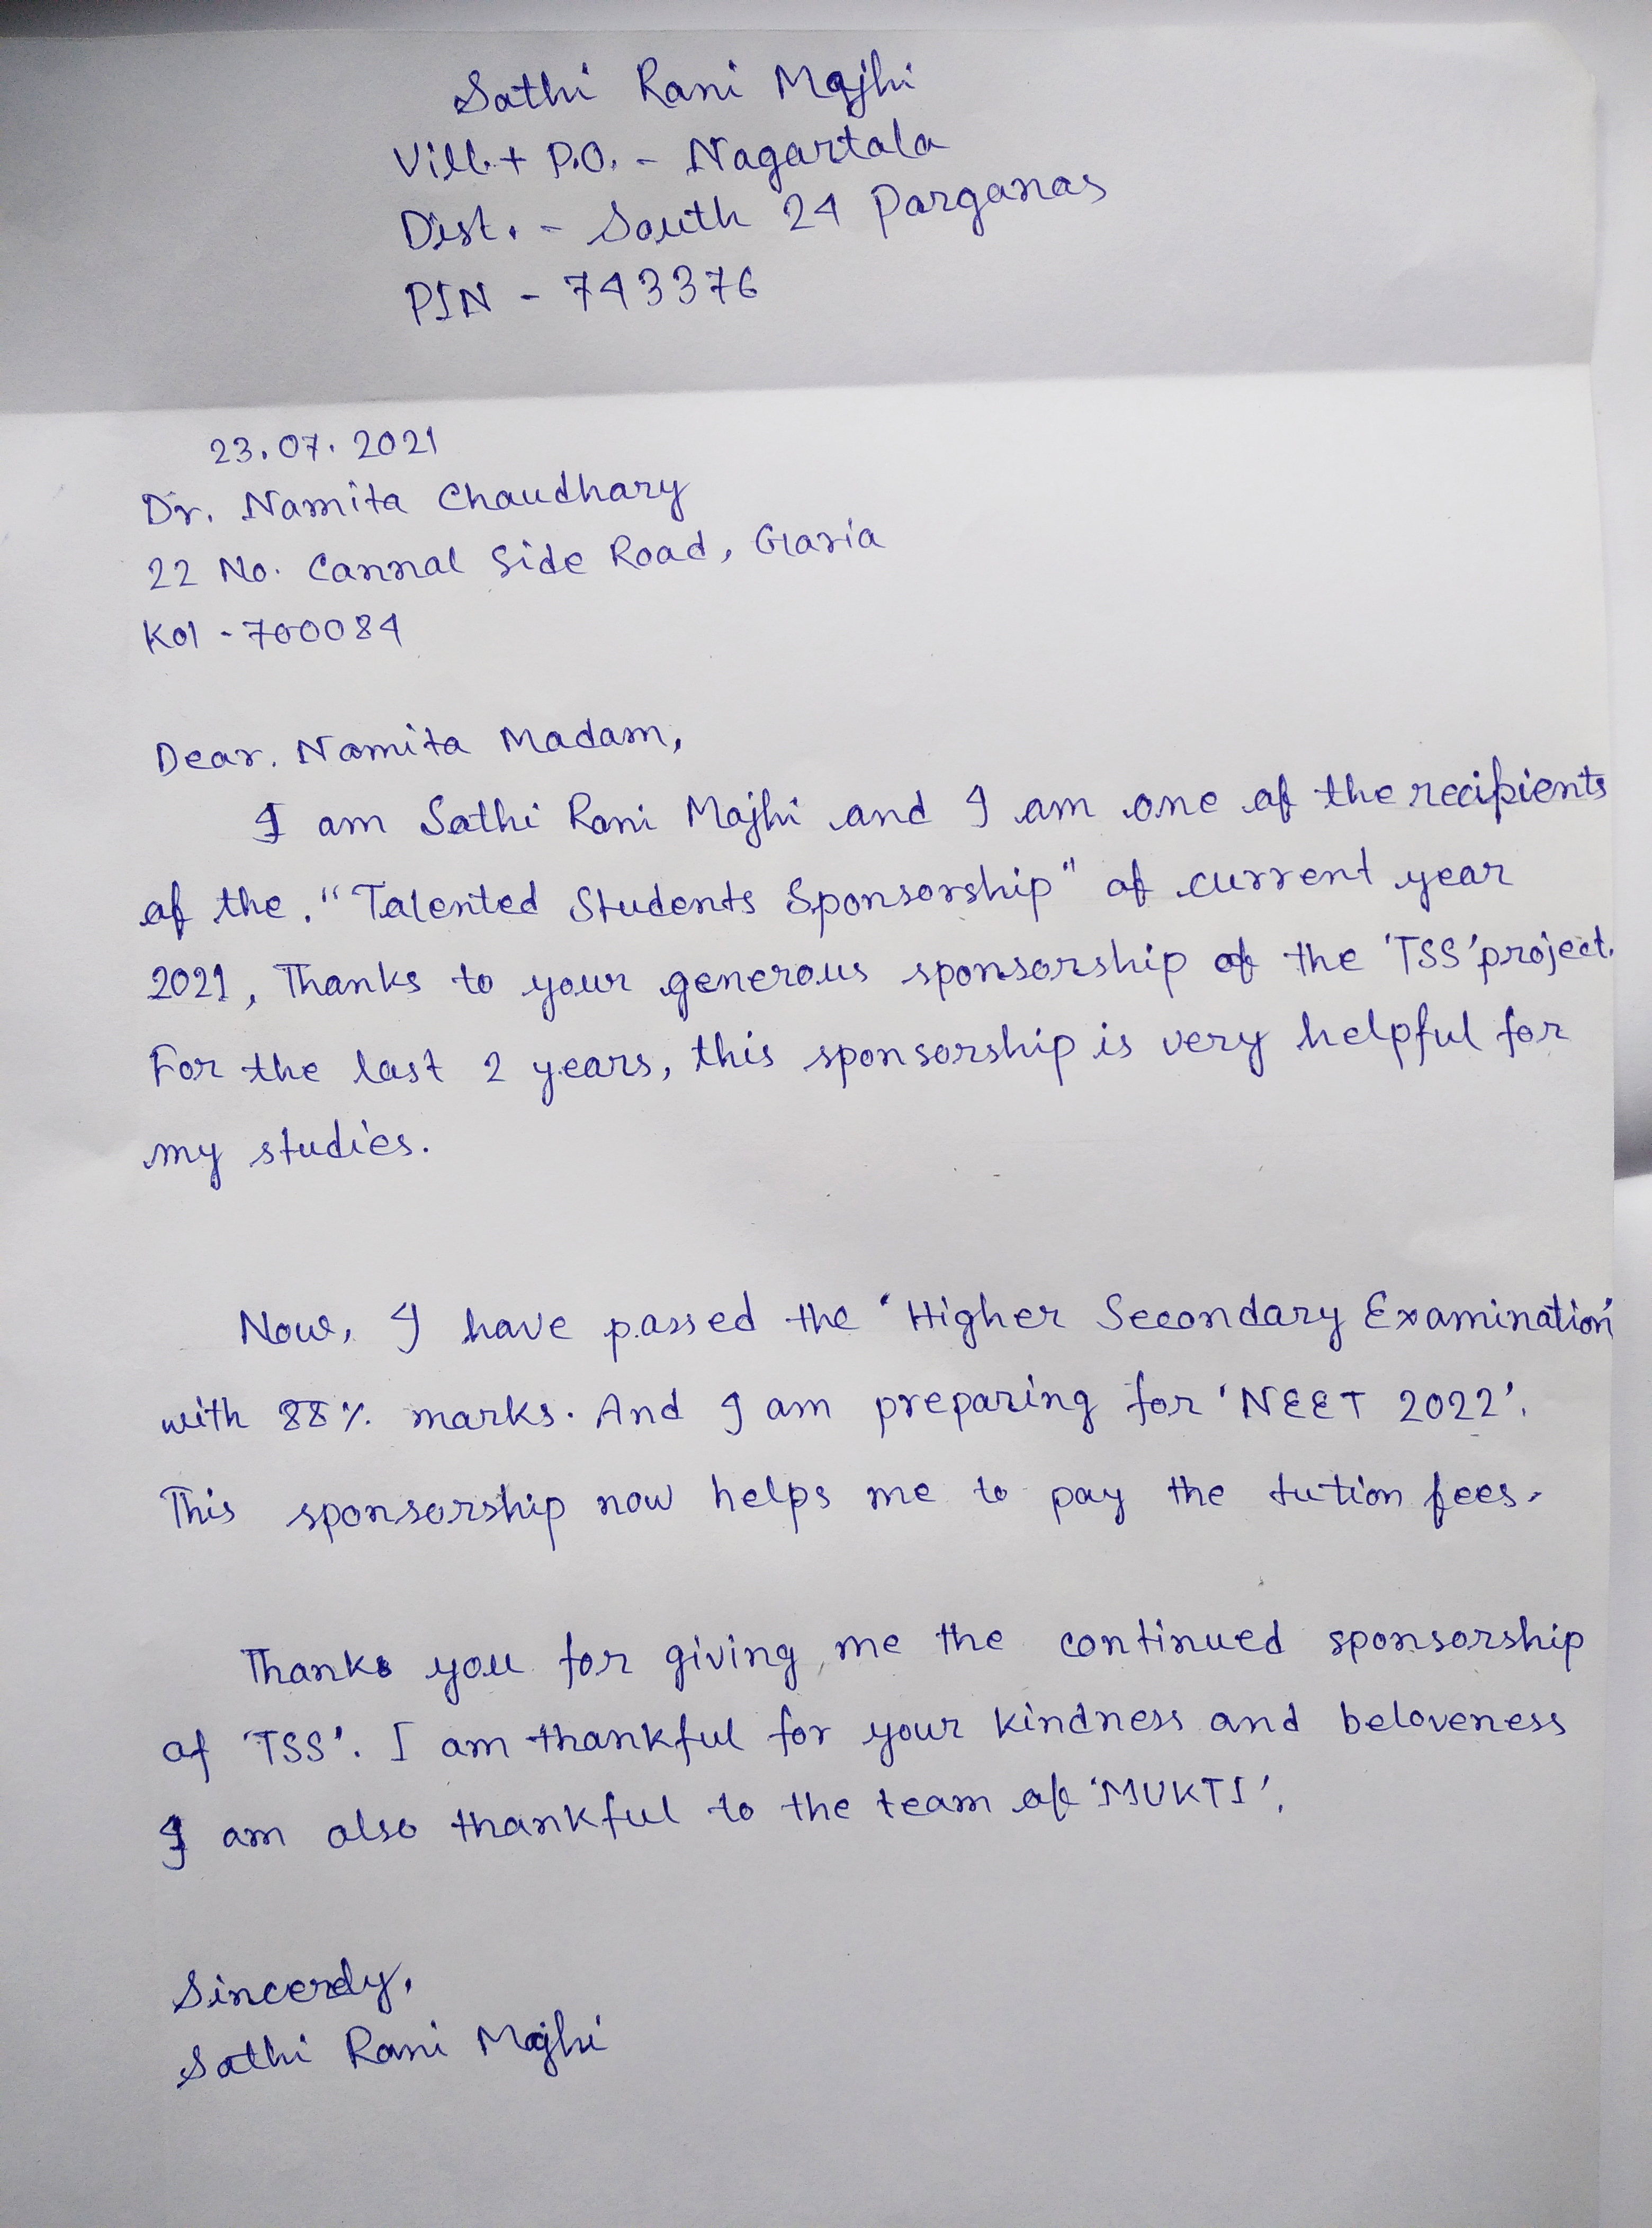 Sathi Rani Majhi
Vill.+ P.O. - Nagartala
Dist. - South 24 Parganas
PIN - 743376
23.07.2021
Dr. Namita Chaudhary
22 No. Cannal Side Road, Garia
Kol - 700084
Dear. Namita Madam,
I am Sathi Rani Majhi and I am one of the recipients
of the. "Talented Students Sponsorship" of current year
2021, Thanks to your generous sponsorship of the 'TSS' project.
For the last 2 years, this sponsorship is very helpful for
my studies.
Now, I have passed the 'Higher Secondary Examination'
with 88% marks. And I am preparing for 'NEET 2022'.
This sponsorship now helps me to pay the tution fees.
Thanks you for giving me the continued sponsorship
of 'TSS'. I am thankful for your kindness and beloveness
I am also thankful to the team of 'MUKTI'.
Sincerely,
Sathi Rani Majhi